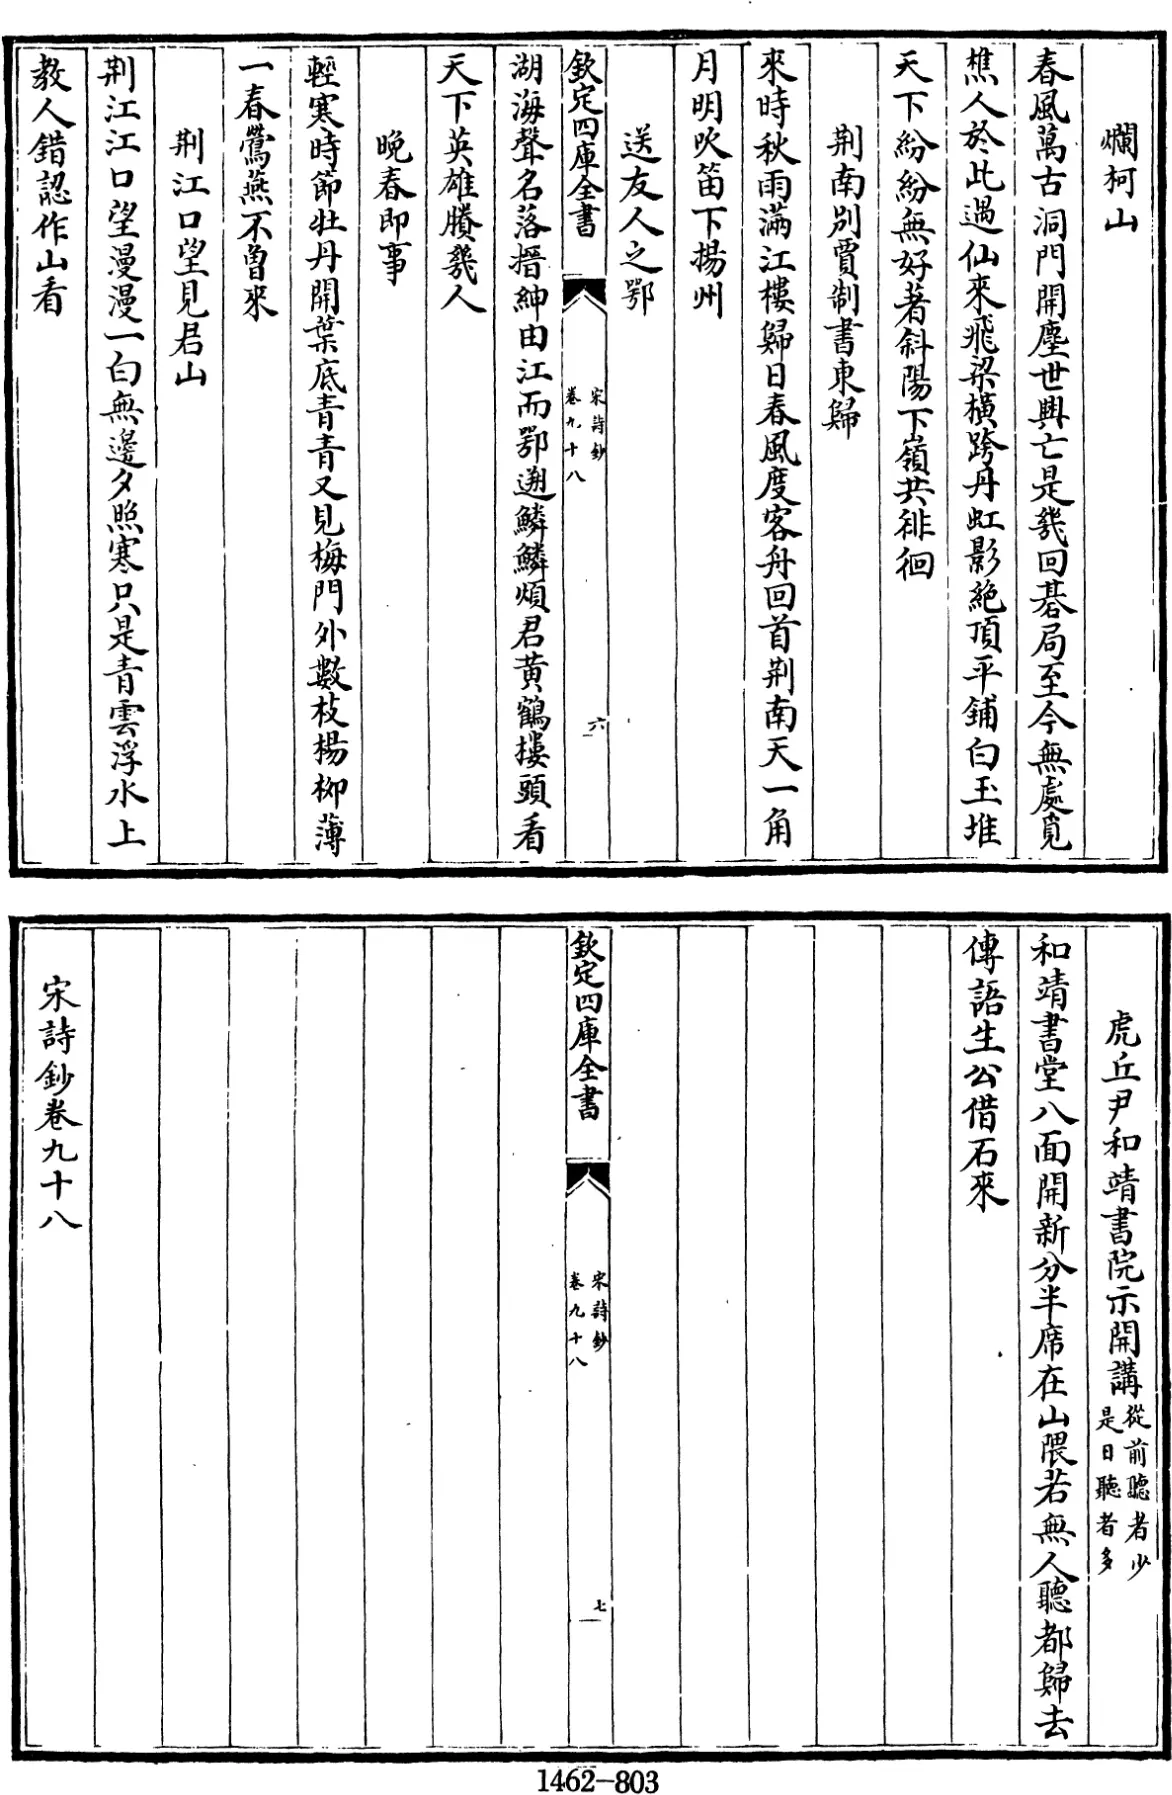 爛柯山
春風萬古洞門開塵世興亡是幾回碁局至今無處覓
樵人於此遇仙來飛梁橫跨丹虹影絶頂平鋪白玉堆
天下紛紛無好著斜陽下嶺共徘徊
荆南別賈制書東歸
來時秋雨滿江樓歸日春風度客舟回首荆南天一角
月明吹笛下揚州
送友人之鄂
欽定四庫全書
宋詩鈔
卷九十八
六
湖海聲名落搢紳由江而鄂遡鱗鱗煩君黄鶴樓頭看
天下英雄賸幾人
晚春即事
輕寒時節牡丹開葉底青青又見梅門外數枝楊柳薄
一春鶯燕不曾來
荆江口望見君山
荆江江口望漫漫一白無邊夕照寒只是青雲浮水上
教人錯認作山看
虎丘尹和靖書院示開講
從前聽者少
是日聽者多
和靖書堂八面開新分半席在山隈若無人聽都歸去
傳語生公借石來
欽定四庫全書
宋詩鈔
卷九十八
七
宋詩鈔卷九十八
1462-803